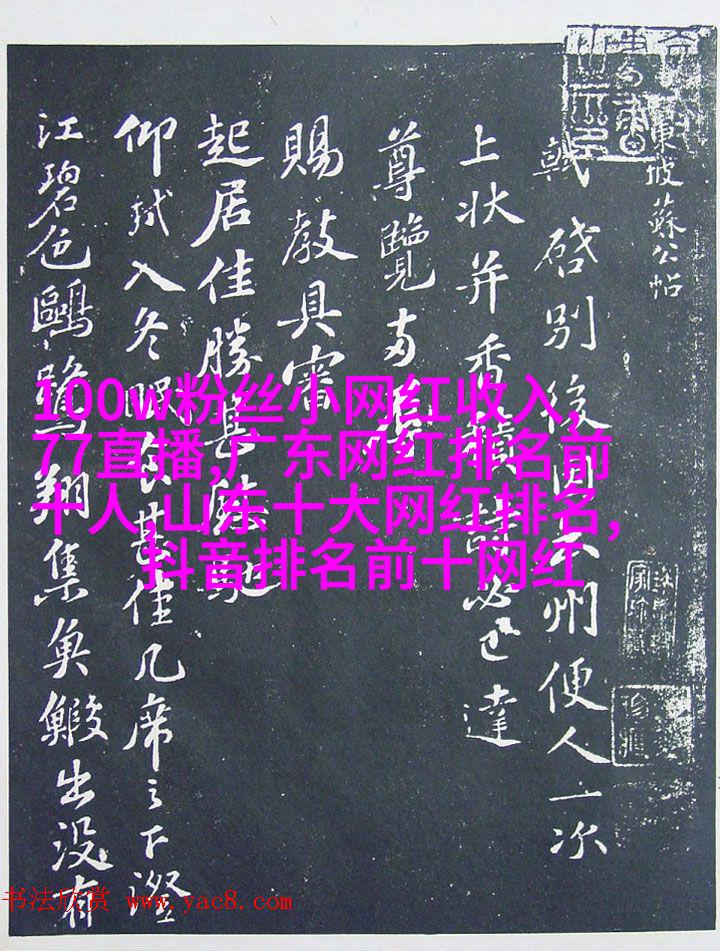 東坡蘇公帖
軾啓別後因
州便人一次
上状并香
必已達
尊覽
賜教具審
起居佳勝甚
馳
仰軾入冬眠食甚佳几席之下澄
江碧色鷗鷺翔集魚鰕出没有
100w粉丝小网红收入,
77直播,广东网红排名前
十人,山东十大网红排名,
抖音排名前十网红
书法欣赏 www.yac8.com